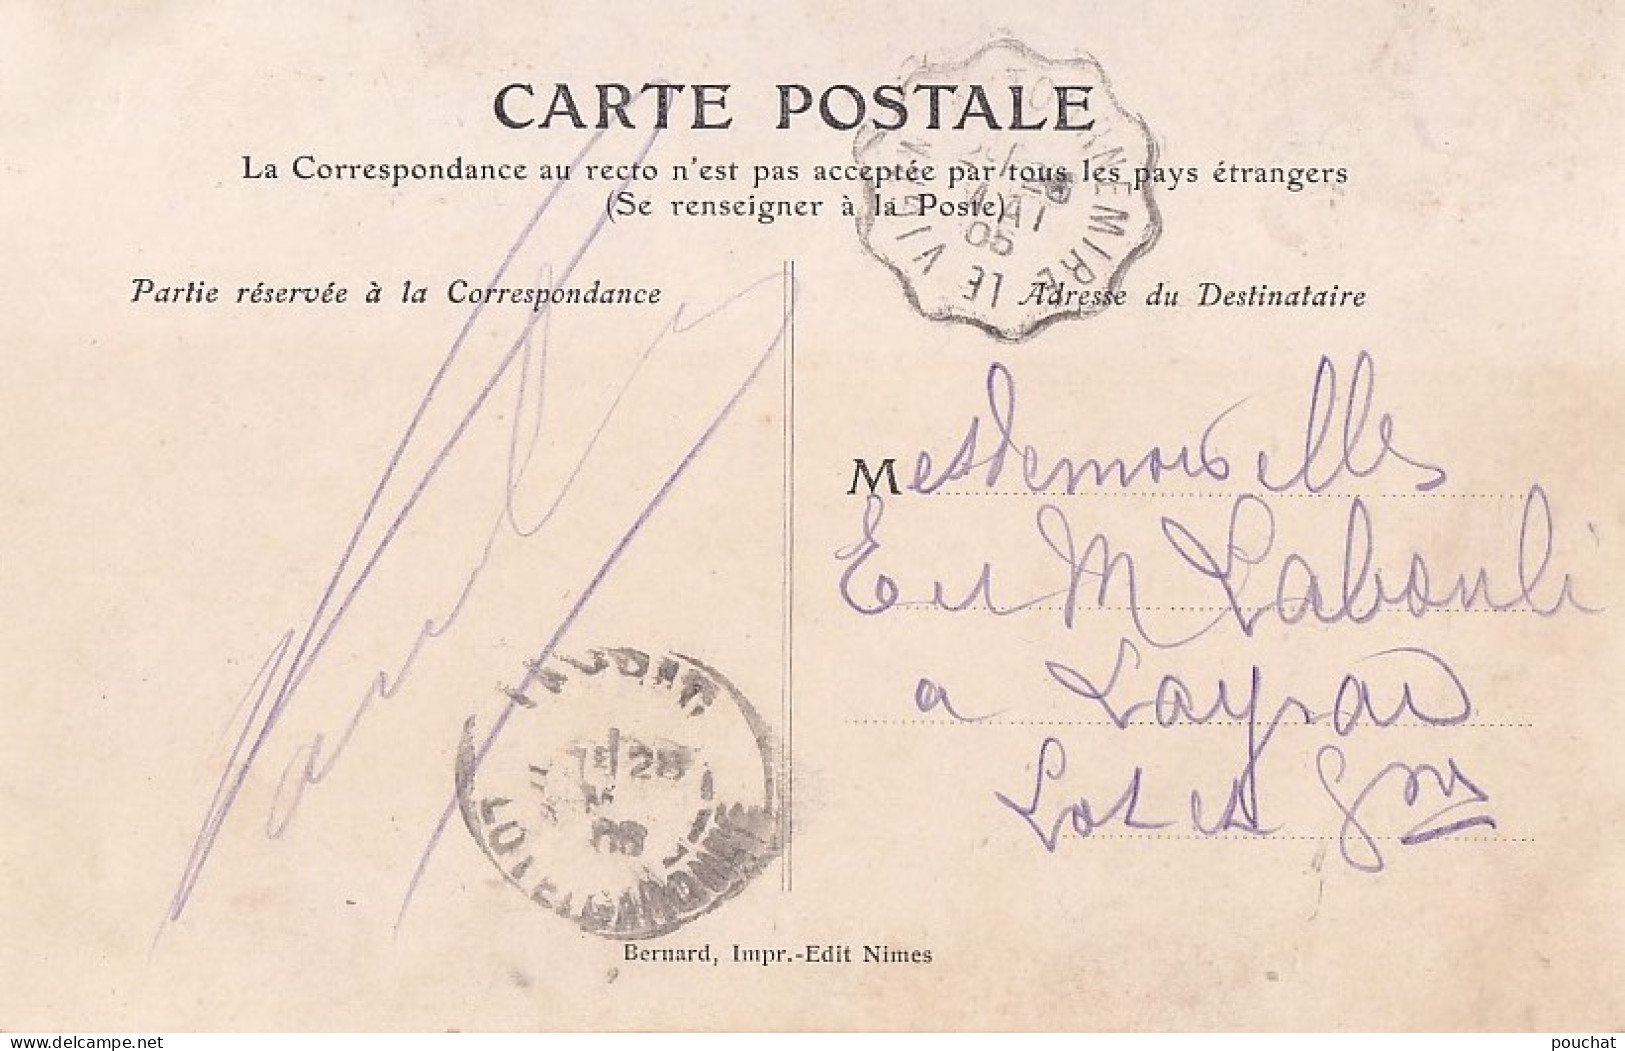 CARTE POSTALE
La Correspondance au recto n'est pas acceptée par tous les pays étrangers
(Se renseigner à la Poste)
Partie réservée à la Correspondance
Adresse du Destinataire
TOURNEMIRE LE VIGAN
MAI
05
Mesdemoiselles
E et M
a Layrac
Lot et Gne
28
LOT-ET-GARONNE
Bernard, Impr.-Edit Nimes
www.delcampe.net
pouchat